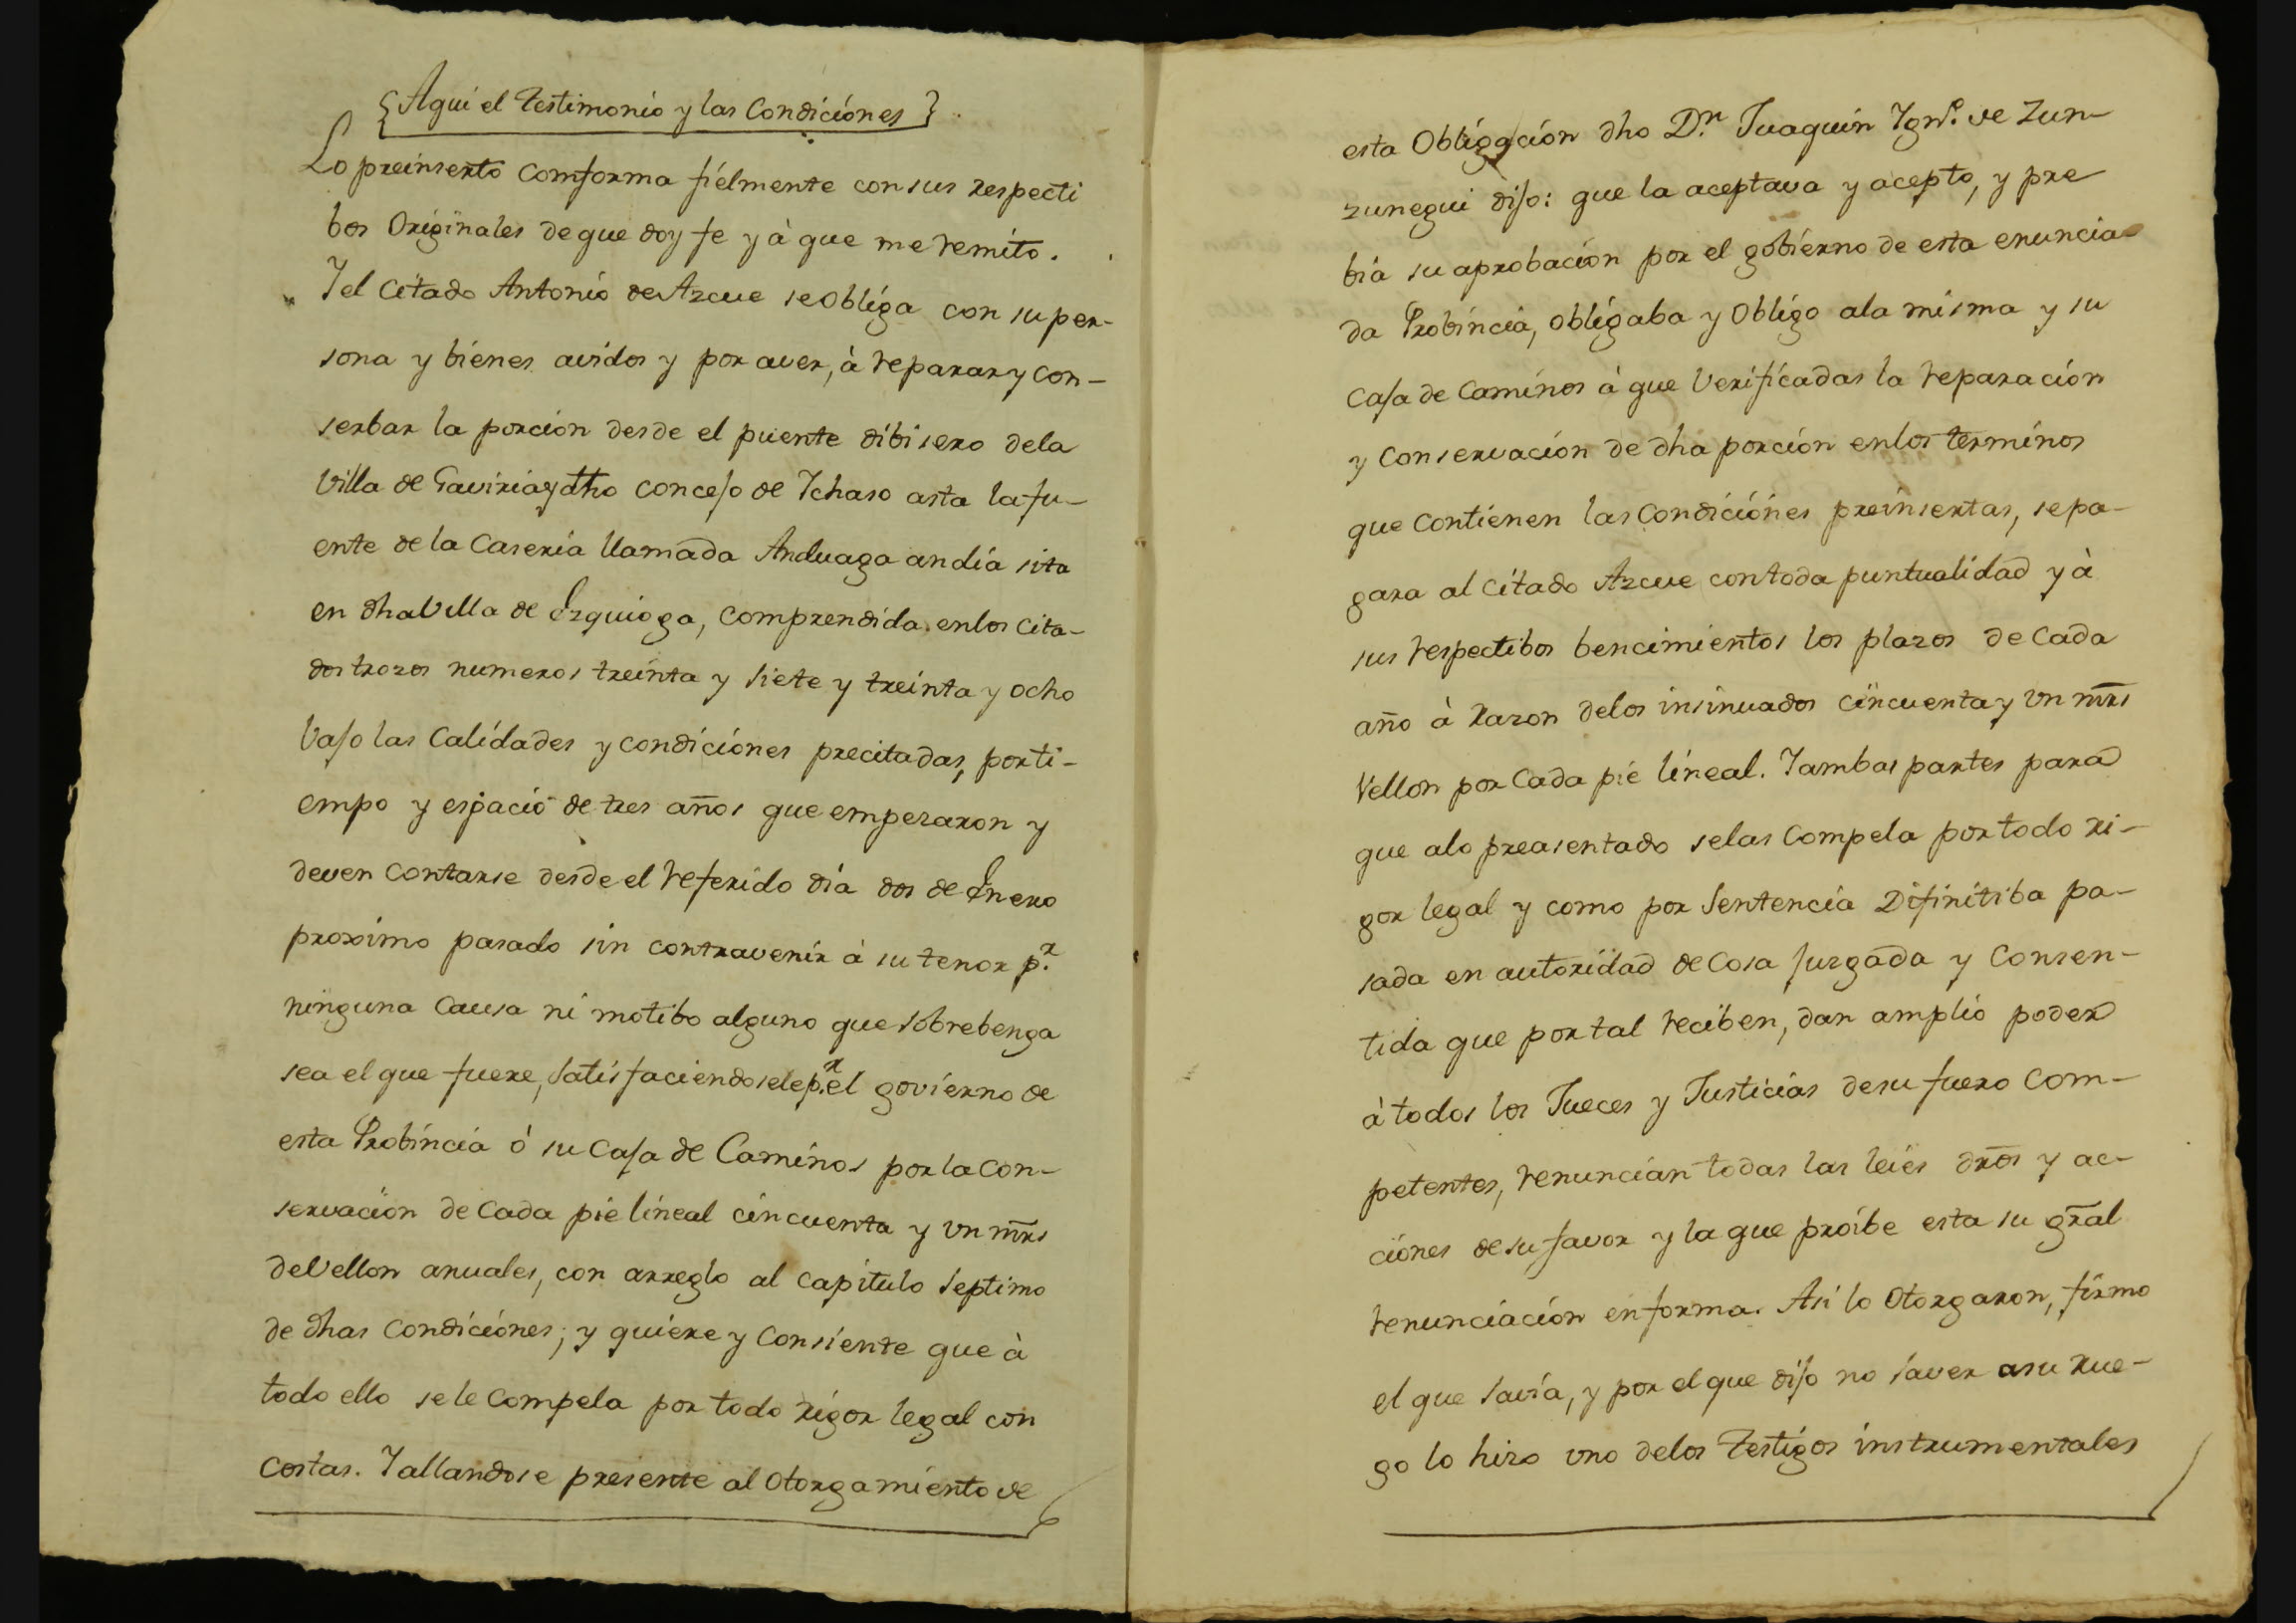 {Aqui el Testimonio y las Condiciones}
Lo preinserto comforma fielmente con sus respecti
bos Originales de que doy fe y à que me remito.
Y el Citado Antonio de Azcue se obliga con su per-
sona y bienes avidos y por aver, à reparar y con-
serbar la porcion desde el puente dibisero dela
Villa de Gaviria y dho concejo de Ychaso asta la fu-
ente de la Caseria llamada Anduaga andia sita
en dha Villa de Ezquioga, comprendida en los cita-
dos trozos numeros treinta y siete y treinta y ocho
Vajo las Calidades y condiciones precitadas, por ti-
empo y espacio de tres años que empezaron y
deven contarse desde el referido dia dos de Enero
proximo pasado sin contravenir à su tenor p.r
ninguna causa ni motibo alguno que sobrebenga
sea el que fuere, satisfaciendosele p.r el govierno de
esta Probincia ó su Caja de Caminos por la con-
servacion de cada pie lineal cincuenta y un mrs
de Vellon anuales, con arreglo al capitulo septimo
de dhas Condiciones; y quiere y consiente que à
todo ello se le compela por todo rigor legal con
costas. Y allandose presente al otorgamiento de
esta Obligacion dho D.n Juaquin Ygn.o de Zun-
zunegui dijo: que la aceptava y acepto, y pre
bia su aprobacion por el gobierno de esta enuncia-
da Probincia, obligaba y obligo ala misma y su
Caja de Caminos á que Verificadas la reparacion
y conservacion de dha porcion en los terminos
que contienen las condiciones preinsertas, se pa-
gara al citado Azcue con toda puntualidad y à
sus respectibos bencimientos los plazos de cada
año à razon delos insinuados cincuenta y un mrs
Vellon por Cada pie lineal. Y ambas partes para
que alo preasentado selas compela por todo ri-
gor legal y como por Sentencia Difinitiba pa-
sada en autoridad de cosa juzgada y consen-
tida que por tal reciben, dan amplio poder
à todos los Jueces y Justicias de su fuero com-
petentes, renuncian todas las leies dros y ac-
ciones de su favor y la que proibe esta su gral
renunciacion en forma. Asi lo Otorgaron, firmo
el que savia, y por el que dijo no saver asu rue-
go lo hizo uno delos Testigos instrumentales